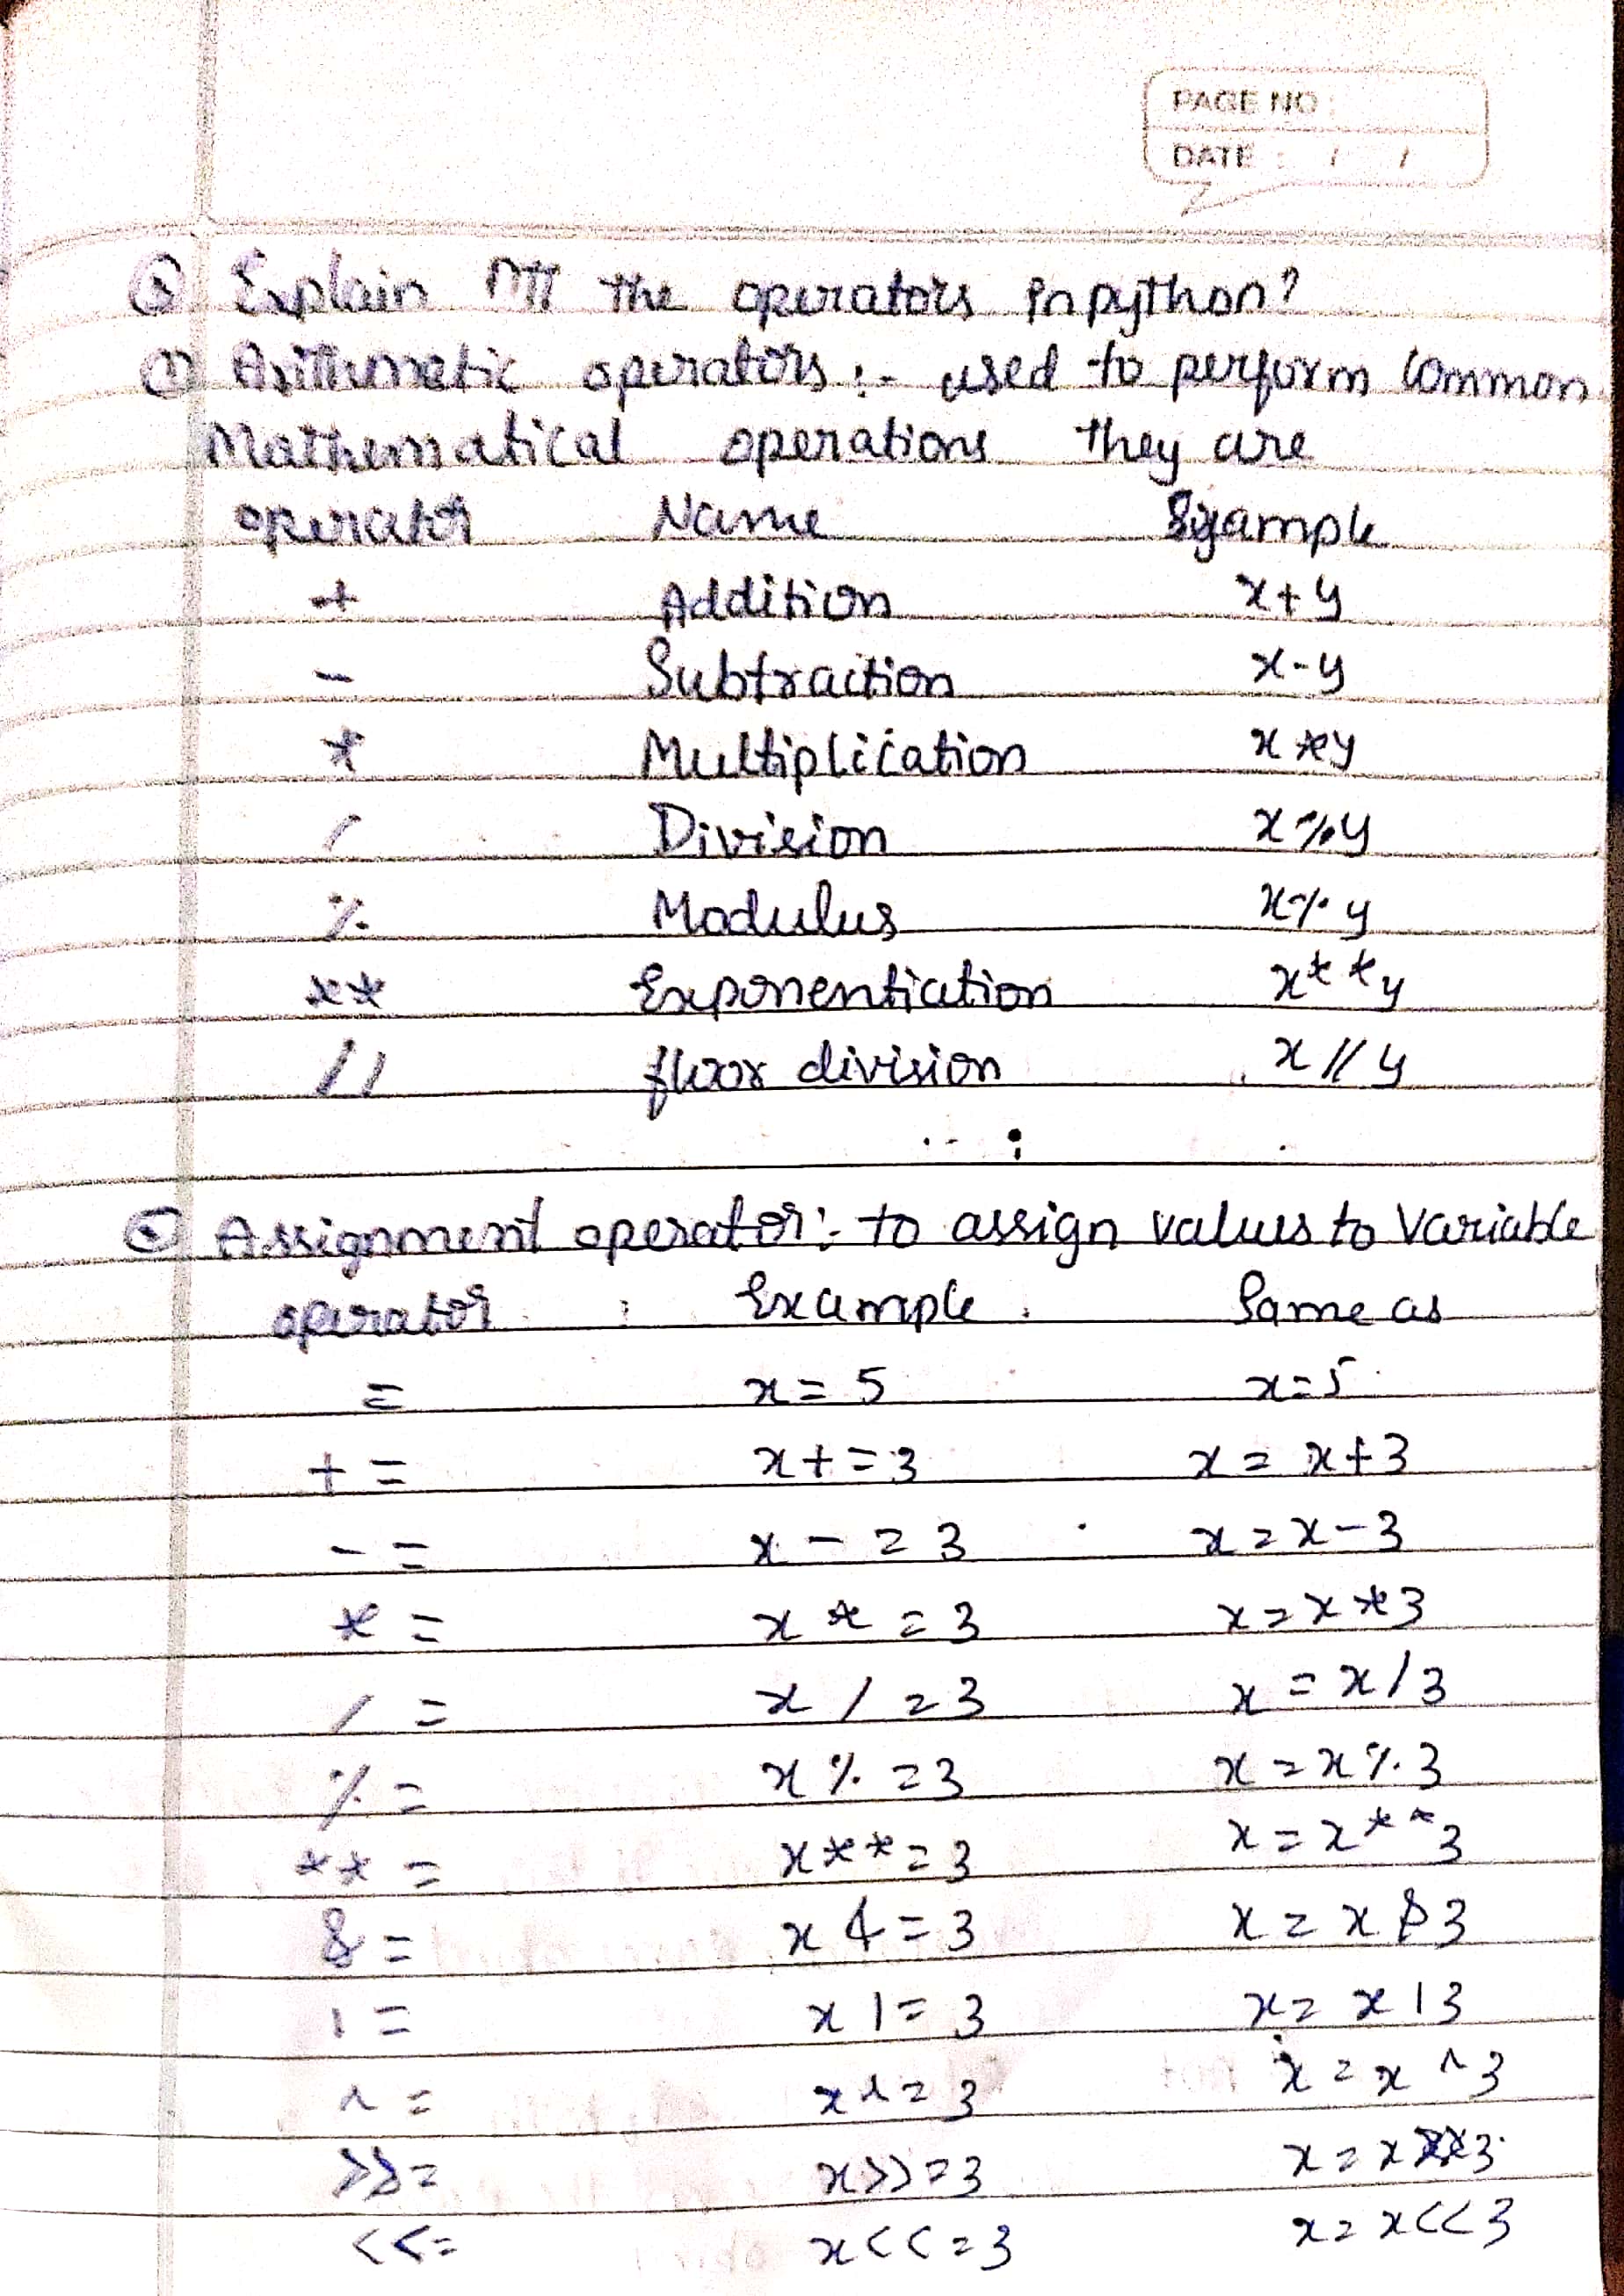 PAGE NO :
DATE : / /
Explain All the operators in python?
① Arithmetic operators :- used to perform Common
Mathematical operations they are
operator Name Example
+ Addition x+y
- Subtraction x-y
* Multiplication x*y
/ Division x%y
% Modulus x%y
** Exponentiation x**y
// floor division x//y
Assignment operator :- to assign values to Variable
operator : Example . Same as
= x=5 x=5
+= x+=3 x=x+3
-= x-=3 x=x-3
*= x*=3 x=x*3
/= x/=3 x=x/3
%= x%=3 x=x%3
**= x**=3 x=x**3
&= x&=3 x=x&3
|= x|=3 x=x|3
^= x^=3 x=x^3
>>= x>>=3 x=x>>3
<<= x<<=3 x=x<<3